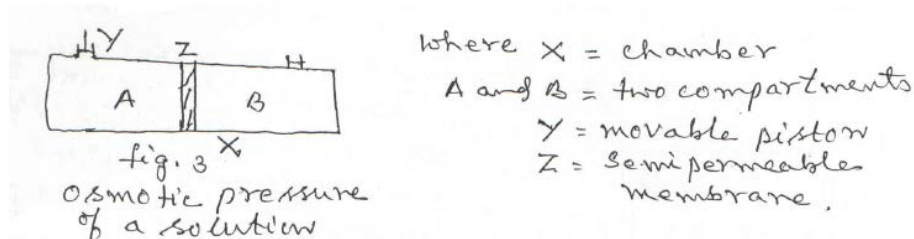 Y
Z
A
B
X
fig. 3
osmotic pressure
of a solution
where X = chamber
A and B = two compartments
Y = movable piston
Z = Semipermeable
membrane.